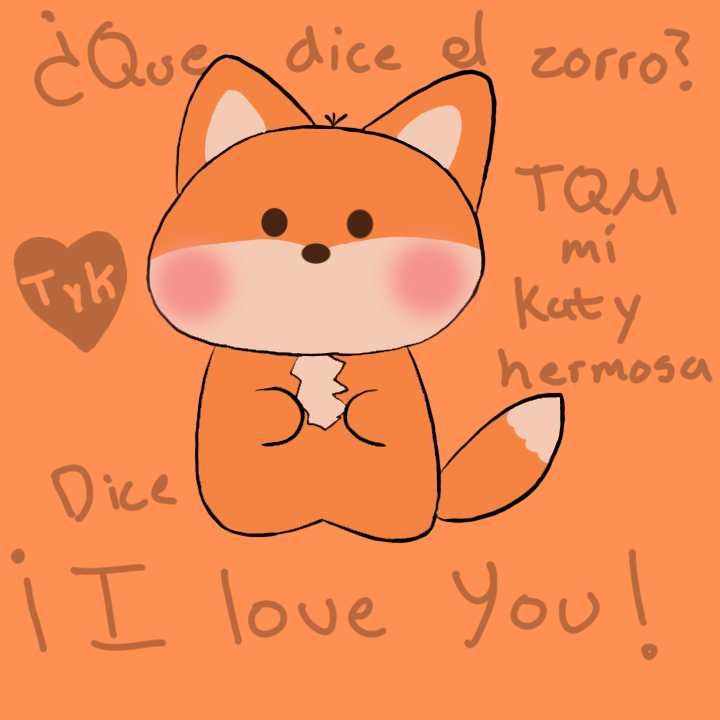 ¿Que dice el zorro?
TQM
mi
Katy
hermosa
TyK
Dice
¡I love You!